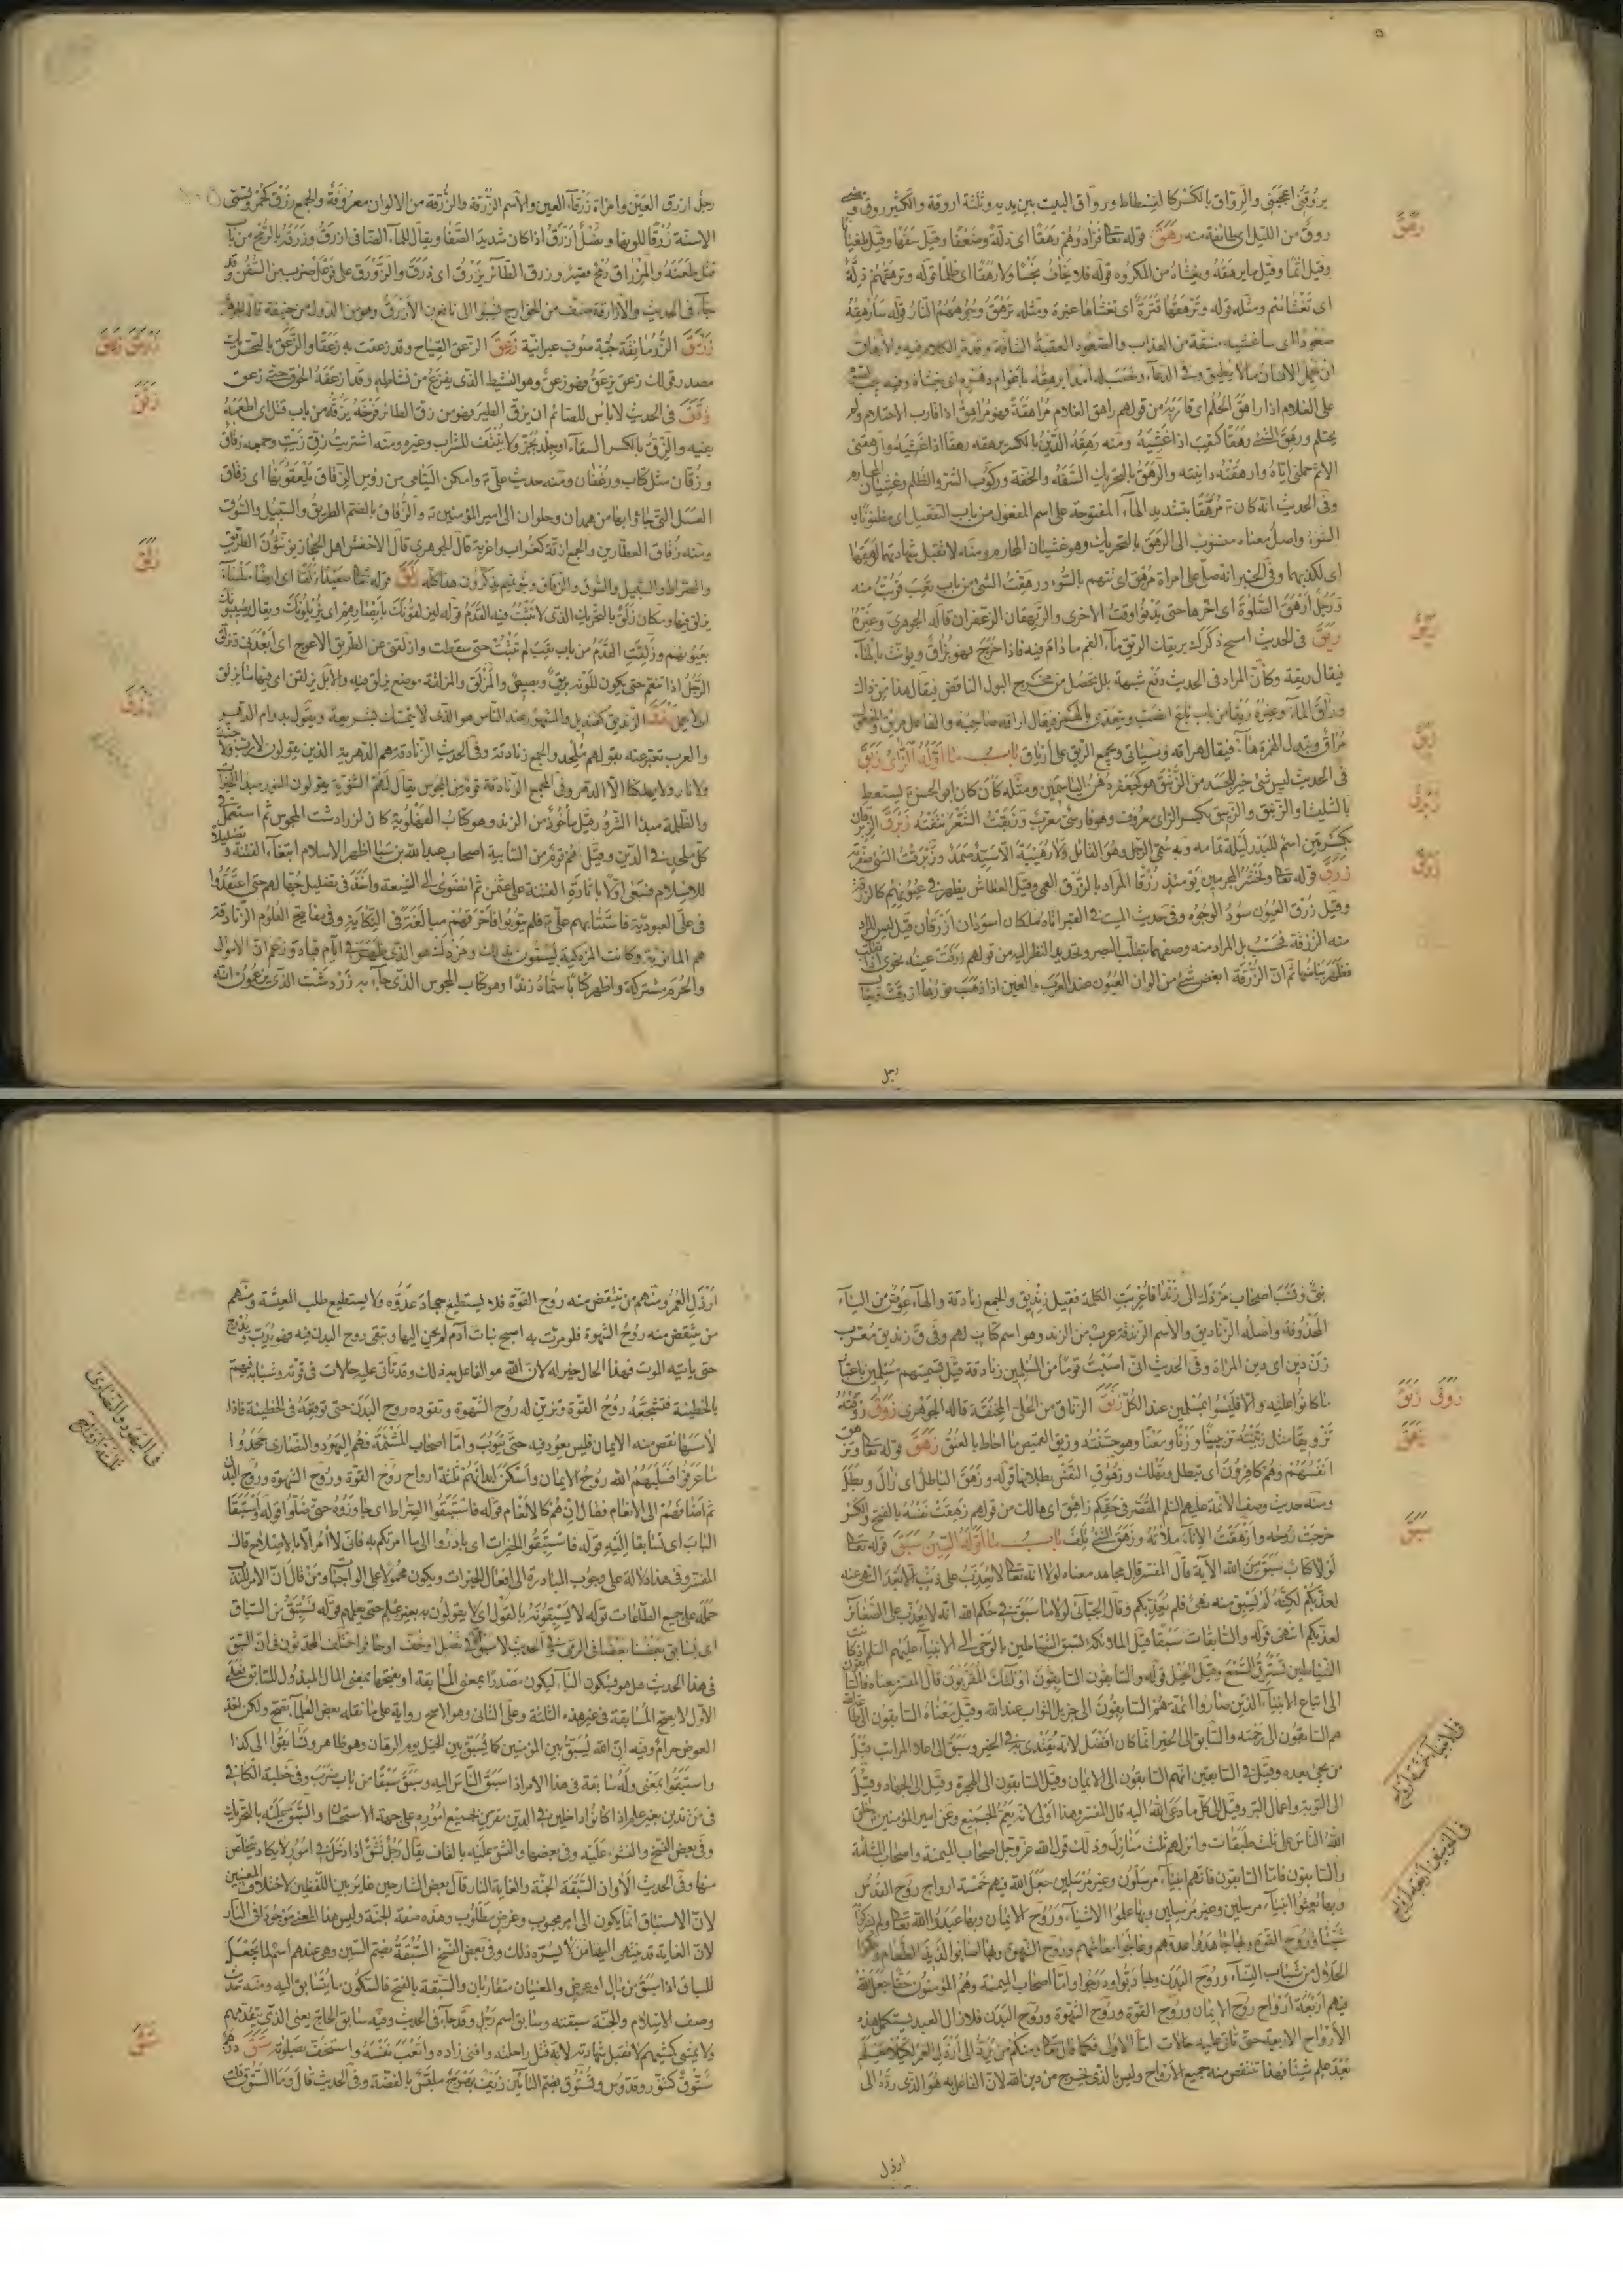 يروقني اعجبني والرواق بالكسر كالفسطاط ورواق البيت بين يديه وثلثة اروقة والكثير روق ومضى
روق من الليل اي طائفة منه رهق قوله تعا فزادوهم رهقا اى ذلة وضعفا وقيل سفها وقيل طغيانا
وقيل اثما وقيل ما يرهقه ويغشاه من المكروه قوله فلا يخاف بخسا ولا رهقا اى ظلما قوله وترهقهم ذلة
اى تغشاهم ومثله قوله وترهقها قترة اى تغشاها غبرة ومثله ترهق وجوههم النار قوله سارهقه
صعودا اى ساغشيه مشقة من العذاب والصعود العقبة الشاقة وقد مر الكلام فيه والارهاق
ان يحمل الانسان ما لا يطيق وفي الدعاء
على الغلام اذا راهق الحلم اى قاربه من قولهم راهق الغلام مراهقة فهو مراهق اذا قارب الاحتلام ولم
يحتلم ورهق الشئ رهقا كتعب اذا غشيه ومنه رهقه الدين بالكسر يرهقه رهقا اذا غشيه وارهقنى
الاثم حملنى اياه وارهقته دانيته والرهق بالتحريك السفه والخفة وركوب الشر والظلم وغشيان المحارم
وفى الحديث انه كان مرهقا بتشديد الهاء المفتوحة على اسم المفعول من باب التفعيل اى مظنونا به
السوء واصل معناه منسوب الى الرهق بالتحريك وهو غشيان المحارم ومنه لا تقبل شهادتهما لرهقهما
اى لكذبهما وفى الخبر انه صلى على امراة ترهق اى تتهم بالسوء ورهقت الشئ من باب تعب قربت منه
ورجل ارهق الصلوة اى اخرها حتى يدنو وقت الاخرى والريهقان الزعفران قاله الجوهري وغيره
ريق فى الحديث امسح ذكرك بريقك الريق ماء الفم ما دام فيه فاذا خرج فهو بزاق ويؤنث بالهاء
فيقال ريقة وكان المراد فى الحديث دفع شبهة بلل يحصل من مخرج البول الناقض فيقال هذا من ذاك
وراق الماء وغيره ريقا من باب باع انصب ويتعدى بالهمزة فيقال اراقه صاحبه والفاعل مريق والمفعول
مراق وتبدل الهمزة هاء فيقال هراقه وسياتى ويجمع الريق على ارياق باب ما اوله الزاى زبق
فى الحديث ليس شئ خير للجسد من الزنبق هو كجعفر دهن الياسمين ومثله كان ابو الحسن يستعط
بالشليثا والزنبق والزيبق بكسر الزاى معروف وهو فارسى معرب وزبقت الشعر نتفته زبرق الزبرقان
بكسرتين اسم للبدر ليلة تمامه وبه سمى الرجل
زرق قوله تعا ونحشر المجرمين يومئذ زرقا المراد بالزرق العمى وقيل العطاش يظهر فى عيونهم كالزرقة
وقيل زرق العيون سود الوجوه وفى حديث الميت فى القبر اتاه ملكان اسودان ازرقان قيل ليس المراد
منه الزرقة فحسب بل المراد منه وصفهما بتقلب البصر وتحديد النظر اليه من قولهم زرقت عينه نحوى اذا انقلبت
فظهر بياضها ثم ان الزرقة ابغض شئ من الوان العيون عند العرب والعين اذا ذهب نورها ازرقت ويقال
رهق
ريق
زبق
زبرق
زرق
رجل
رجل ازرق العين وامراة زرقاء العين والاسم الزرقة والزرقة من الالوان معروفة والجمع زرق كحمر وتسمى
الاسنة زرقا للونها ونصل ازرق اذا كان شديد الصفا ويقال للماء الصافى ازرق وزرقه بالرمح من باب
قتل طعنه والمزراق رمح قصير وزرق الطائر يزرق اى ذرق والزورق على فوعل ضرب من السفن وقد
جاء فى الحديث والازارقة صنف من الخوارج نسبوا الى نافع بن الازرق وهو من الدول من حنيفة قاله الجوهرى
زرمق الزرمانقة جبة صوف عبرانية زعق الزعق الصياح وقد زعقت به زعقا والزعق بالتحريك
مصدر قولك زعق يزعق فهو زعق وهو النشيط الذى يفزع من نشاطه وقد ازعقه الخوف حتى زعق
زقق فى الحديث لا باس للصائم ان يزق الطير وهو من زق الطائر فرخه يزقه من باب قتل اى اطعمه
بفيه والزق بالكسر السقاء او جلد يجز ولا ينتف للشراب وغيره ومنه اشتريت زق زيت وجمعه زقاق
وزقان مثل كتاب ورغفان ومنه حديث على ع وامكن اليتامى من رؤس الزقاق يلعقونها اى زقاق
العسل التى جاءوا بها من همدان وحلوان الى امير المؤمنين ع والزقاق بالضم الطريق والسبيل والسوق
ومنه زقاق العطارين والجمع ازقة كغراب واغربة قال الجوهرى قال الاخفش اهل الحجاز يؤنثون الطريق
والصراط والسبيل والسوق والزقاق وبنو تميم يذكرون هذا كله زلق قوله تعا صعيدا زلقا اى ارضا ملساء
يزلق فيها ومكان زلق بالتحريك الذى لا تثبت فيه القدم قوله ليزلقونك بابصارهم اى يزيلونك ويقال يصيبونك
بعيونهم وزلقت القدم من باب تعب لم تثبت حتى سقطت وازلقنى عن الطريق الاعوج اى ابعدنى وتزلق
الرجل اذا تنعم حتى يكون للونه بريق وبصيص والمزلق والمزلقة موضع يزلق فيه
زندق الزنديق كقنديل والمشهور عند الناس هو الذى لا يتمسك بشريعة ويقول بدوام الدهر
والعرب تعبر عنه بقولهم ملحد والجمع زنادقة وفى الحديث الزنادقة هم الدهرية الذين يقولون لا رب ولا جنة
ولا نار ولا يهلكنا الا الدهر وفى المجمع الزنادقة قوم من المجوس يقال لهم الثنوية يقولون النور مبدا الخيرات
والظلمة مبدا الشرور وقيل ماخوذ من الزند وهو كتاب الفهلوية كان لزرادشت المجوس ثم استعمل فى
كل ملحد فى الدين وقيل هم قوم من السبابية اصحاب عبد الله بن سبا اظهر الاسلام ابتغاء الفتنة وتضليلا
للاسلام فسعى اولا باثارة الفتنة على عثمن ثم انضوى الى الشيعة واخذ فى تضليل جهالهم حتى اعتقدوا
فى على العبودية فاستتابهم على ع فلم يتوبوا فاحرقهم مبالغة فى النكاية وفى مفاتيح العلوم الزنادقة
هم المانوية وكانت المزدكية يسمون بذلك ومزدك هو الذى ظهر فى ايام قباد وزعم ان الاموال
والحرم مشتركة واظهر كتابا سماه زندا وهو كتاب المجوس الذى جاء به زردشت الذى يزعمون انه
زرمق زعق
زقق
زلق
زندق
نبى ونسب اصحاب مزدك الى زندا فاعربت الكلمة فقيل زنديق والجمع زنادقة والهاء عوض من الياء
المحذوفة واصله الزناديق والاسم الزندقة عرب من الزند وهو اسم كتاب لهم وفى ق زنديق معرب
زن دين اى دين المراة وفى الحديث انى اصبت قوما من المسلمين زنادقة قيل تسميتهم مسلمين باعتبار
ما كانوا عليه والا فليسوا بمسلمين عند الكل زنق الزناق من الحلى المخنقة قاله الجوهرى زوق زوقته
تزويقا مثل زينته تزيينا وزنا ومعنا وهو حسنته وزيق القميص ما احاط بالعنق زهق قوله تعا وتزهق
انفسهم وهم كافرون اى تبطل وتهلك وزهوق النفس بطلانها قوله وزهق الباطل اى زال وبطل
ومنه حديث وصف الائمة عليهم السلم المقصر فى حقكم زاهق اى هالك من قولهم زهقت نفسه بالفتح والكسر
خرجت روحه وازهقت الاناء ملأته وزهق الشئ تلف باب ما اوله السين سبق قوله تعا
لولا كتاب سبق من الله الآية قال المفسر قال مجاهد معناه لولا انه تعا لا يعذب على ذنب الا بعد النهى عنه
لعذبكم لكنه لم يسبق منه نهى فلم يعذبكم وقال الجبائى لولا ما سبق فى حكم الله انه لا يعذب على الصغائر
لعذبكم انتهى قوله والسابقات سبقا قيل الملائكة تسبق الشياطين بالوحى الى الانبياء عليهم السلم اذ كانت
الشياطين تسترق السمع وقيل الخيل قوله والسابقون السابقون اولئك المقربون قال المفسر معناه فالسابقون
الى اتباع الانبياء الذين صاروا ائمة هم السابقون الى جزيل الثواب عند الله وقيل معناه السابقون الى طاعة الله
هم السابقون الى رحمته والسابق الى الخير انما كان افضل لانه يقتدى به فى الخير وسبق الى اعلا المراتب قبل
من يجئ بعده وقيل فى السابقين انهم السابقون الى الايمان وقيل السابقون الى الهجرة وقيل الى الجهاد وقيل
الى التوبة واعمال البر وقيل الى كل ما دعى الله اليه قال المفسر وهذا اولى لانه يعم الجميع وعن امير المؤمنين ع خلق
الله الناس على ثلث طبقات وانزلهم ثلث منازل وذلك قول الله عز وجل اصحاب الميمنة واصحاب المشئمة
والسابقون فاما السابقون فانهم انبياء مرسلون وغير مرسلين جعل الله فيهم خمسة ارواح روح القدس
وبها بعثوا انبياء مرسلين وغير مرسلين وبها علموا الاشياء وروح الايمان وبها عبدوا الله تعا ولم يشركوا
شيئا وروح القوة وبها جاهدوا عدوهم وعالجوا معاشهم وروح الشهوة وبها اصابوا لذيذ الطعام ونكحوا
الحلال من شباب النساء وروح البدن وبها دبوا ودرجوا واما اصحاب الميمنة وهم المؤمنون حقا جعل الله
فيهم اربعة ارواح روح الايمان وروح القوة وروح الشهوة وروح البدن فلا زال العبد يستكمل هذه
الأرواح الاربعة حتى تاتى عليه حالات اما الاولى فكما قال تعا ومنكم من يرد الى ارذل العمر لكيلا يعلم
بعد علم شيئا فهذا تنتقص منه جميع الأرواح وليس بالذى يخرج من دين الله لان الفاعل به هو الذى رده الى
زوق زنق
زهق
سبق
فى الانبياء خمسة ارواح
فى المؤمنين اربعة ارواح
ارذل
ارذل العمر ومنهم من ينتقص منه روح القوة فلا يستطيع جهاد عدوه ولا يستطيع طلب المعيشة ومنهم
من ينتقص منه روح الشهوة فلو مرت به اصبح بنات آدم لم يحن اليها وتبقى روح البدن فيه فهو يدب ويدرج
حتى ياتيه الموت فهذا الحال خير له لان الله هو الفاعل به ذلك وقد تاتى عليه حالات فى قوته وشبابه فيهم
بالخطيئة فتشجعه روح القوة وتزين له روح الشهوة وتقوده روح البدن حتى توقعه فى الخطيئة فاذا
لامسها نقص منه الايمان فليس يعود فيه حتى يتوب واما اصحاب المشئمة فهم اليهود والنصارى جحدوا
ما عرفوا فسلبهم الله روح الايمان واسكن ابدانهم ثلثة ارواح روح القوة وروح الشهوة وروح البدن
ثم اضافهم الى الانعام فقال ان هم الا كالانعام قوله فاستبقوا الصراط اى جاوزوه حتى ضلوا قوله واستبقا
الباب اى تسابقا اليه قوله فاستبقوا الخيرات اى بادروا الى ما امرتكم به فانى لا آمر الا بالاصلاح قال
المفسر وفى هذا دلالة على وجوب المبادرة الى افعال الخيرات ويكون محمولا على الواجبات ومن قال ان الامر للندب
حمله على جميع الطاعات قوله لا يسبقونه بالقول اى لا يقولون بغير علم حتى يعلمهم قوله نستبق من السباق
اى يسابق بعضنا بعضا فى الرمى وفى الحديث لا سبق الا فى نصل او خف او حافر اختلف المحدثون فى ان السبق
فى هذا الحديث هل هو بسكون الباء ليكون مصدرا بمعنى المسابقة او بفتحها بمعنى المال المبذول للسابق فعلى
الأول لا يصح المسابقة فى غير هذه الثلثة وعلى الثانى وهو الاصح رواية على ما نقله بعض العلماء يصح ولكن اخذ
العوض حرام وفيه ان الله يسبق بين المؤمنين كما يسبق بين الخيل يوم الرهان وهو ظاهر وتسابقوا الى كذا
واستبقوا بمعنى وله سابقة فى هذا الامر اذا سبق الناس اليه وسبق سبقا من باب ضرب وفى خطبة الكافى
فى من تدين بغير علم اذا كانوا داخلين فى الدين مقرين بجميع اموره على جهة الاستحسان والسبق عليه بالتحريك
وفى بعض النسخ والنشوء عليه وفى بعضها والنشق عليه بالقاف يقال رجل نشق اذا دخل فى امور لا يكاد يتخلص
منها وفى الحديث الا وان السبقة الجنة والغاية النار قال بعض الشارحين غاير بين اللفظين لاختلاف المعنيين
لان الاستباق انما يكون الى امر محبوب وغرض مطلوب وهذه صفة الجنة وليس هذا المعنى موجودا فى النار
لان الغاية قد ينتهى اليها من لا يسره ذلك وفى بعض النسخ السبقة بضم السين وهى عندهم اسم لما يجعل
للسابق اذا سبق من مال او عرض والمعنيان متقاربان والسبقة بالفتح فالسكون ما يتسابق اليه ومنه حديث
وصف الاسلام والجنة سبقته وسابق اسم رجل وقد جاء فى الحديث وفيه سابق الحاج يعنى الذى يتقدمهم
ولا يمشى كمشيهم لا تقبل شهادته لانه قتل راحلته وافنى زاده واتعب نفسه واستخف بصلوته ستق درهم
ستوق كتنور وقدوس وتستوق بضم التائين زيف بهرج ملبس بالفضة وفى الحديث قال وما الستوق قلت
فى اليهود والنصارى
ثلثة ارواح
ستق